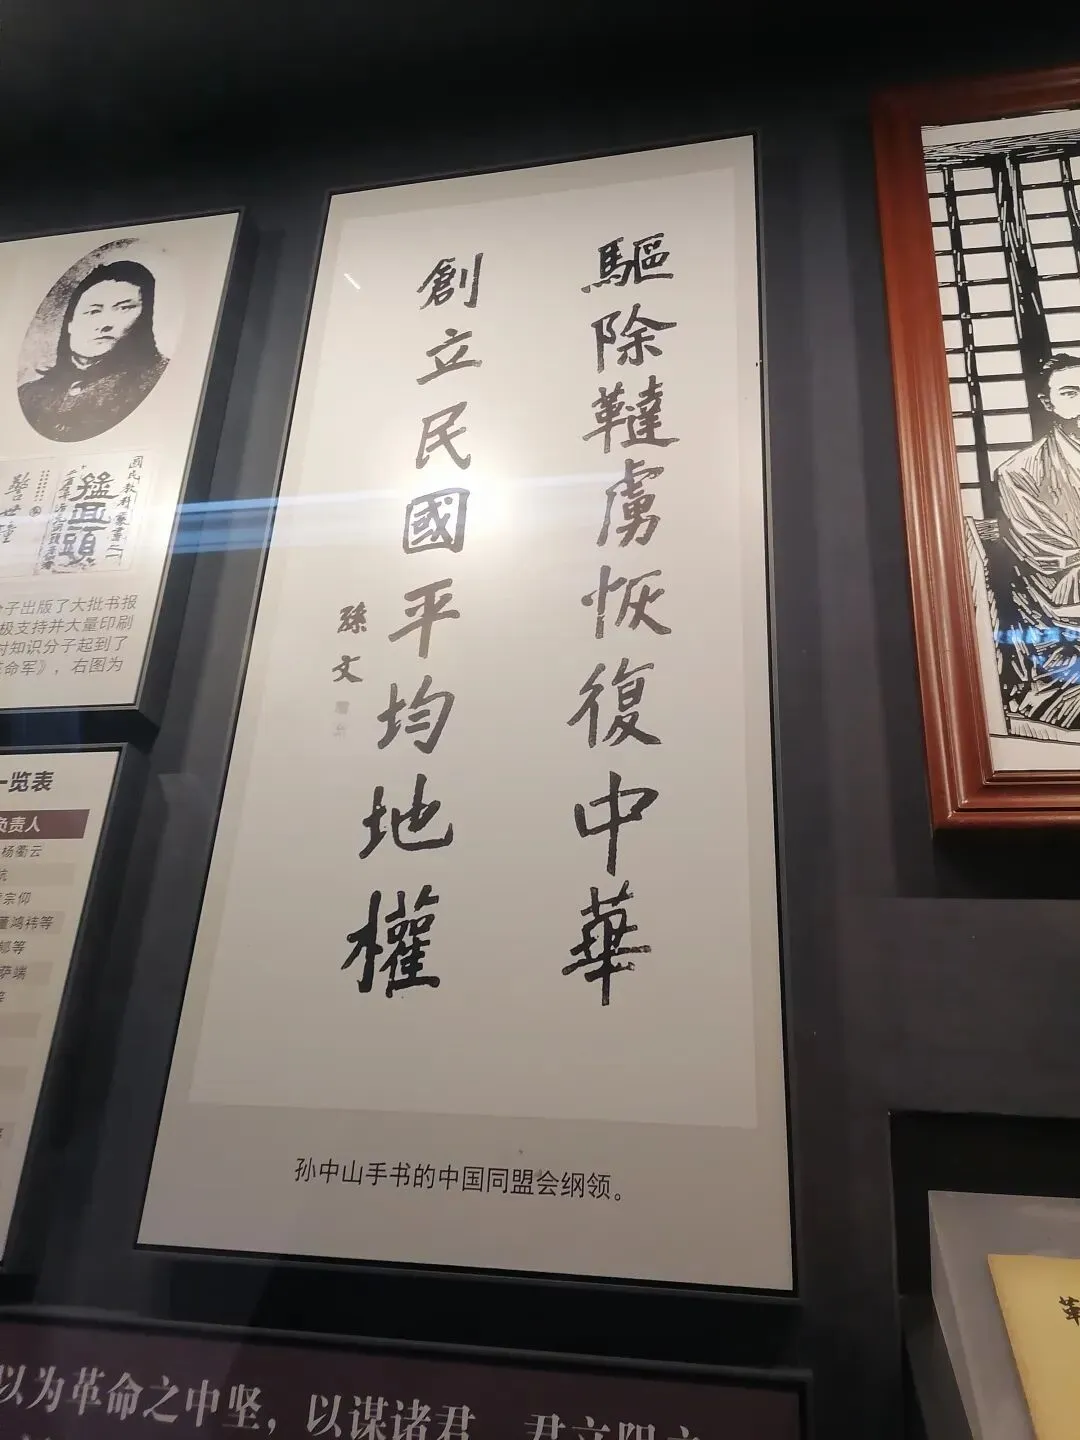 驅除韃虜恢復中華
創立民國平均地權
孫文
孙中山手书的中国同盟会纲领。
國民教科叢書之一
猛回頭
警世鐘
分子出版了大批书报
极支持并大量印刷
对知识分子起到了
革命军》，右图为
一览表
负责人
杨衢云
宗仰
董鸿祎等
等
萨端
以为革命之中坚，以谋诸君
革